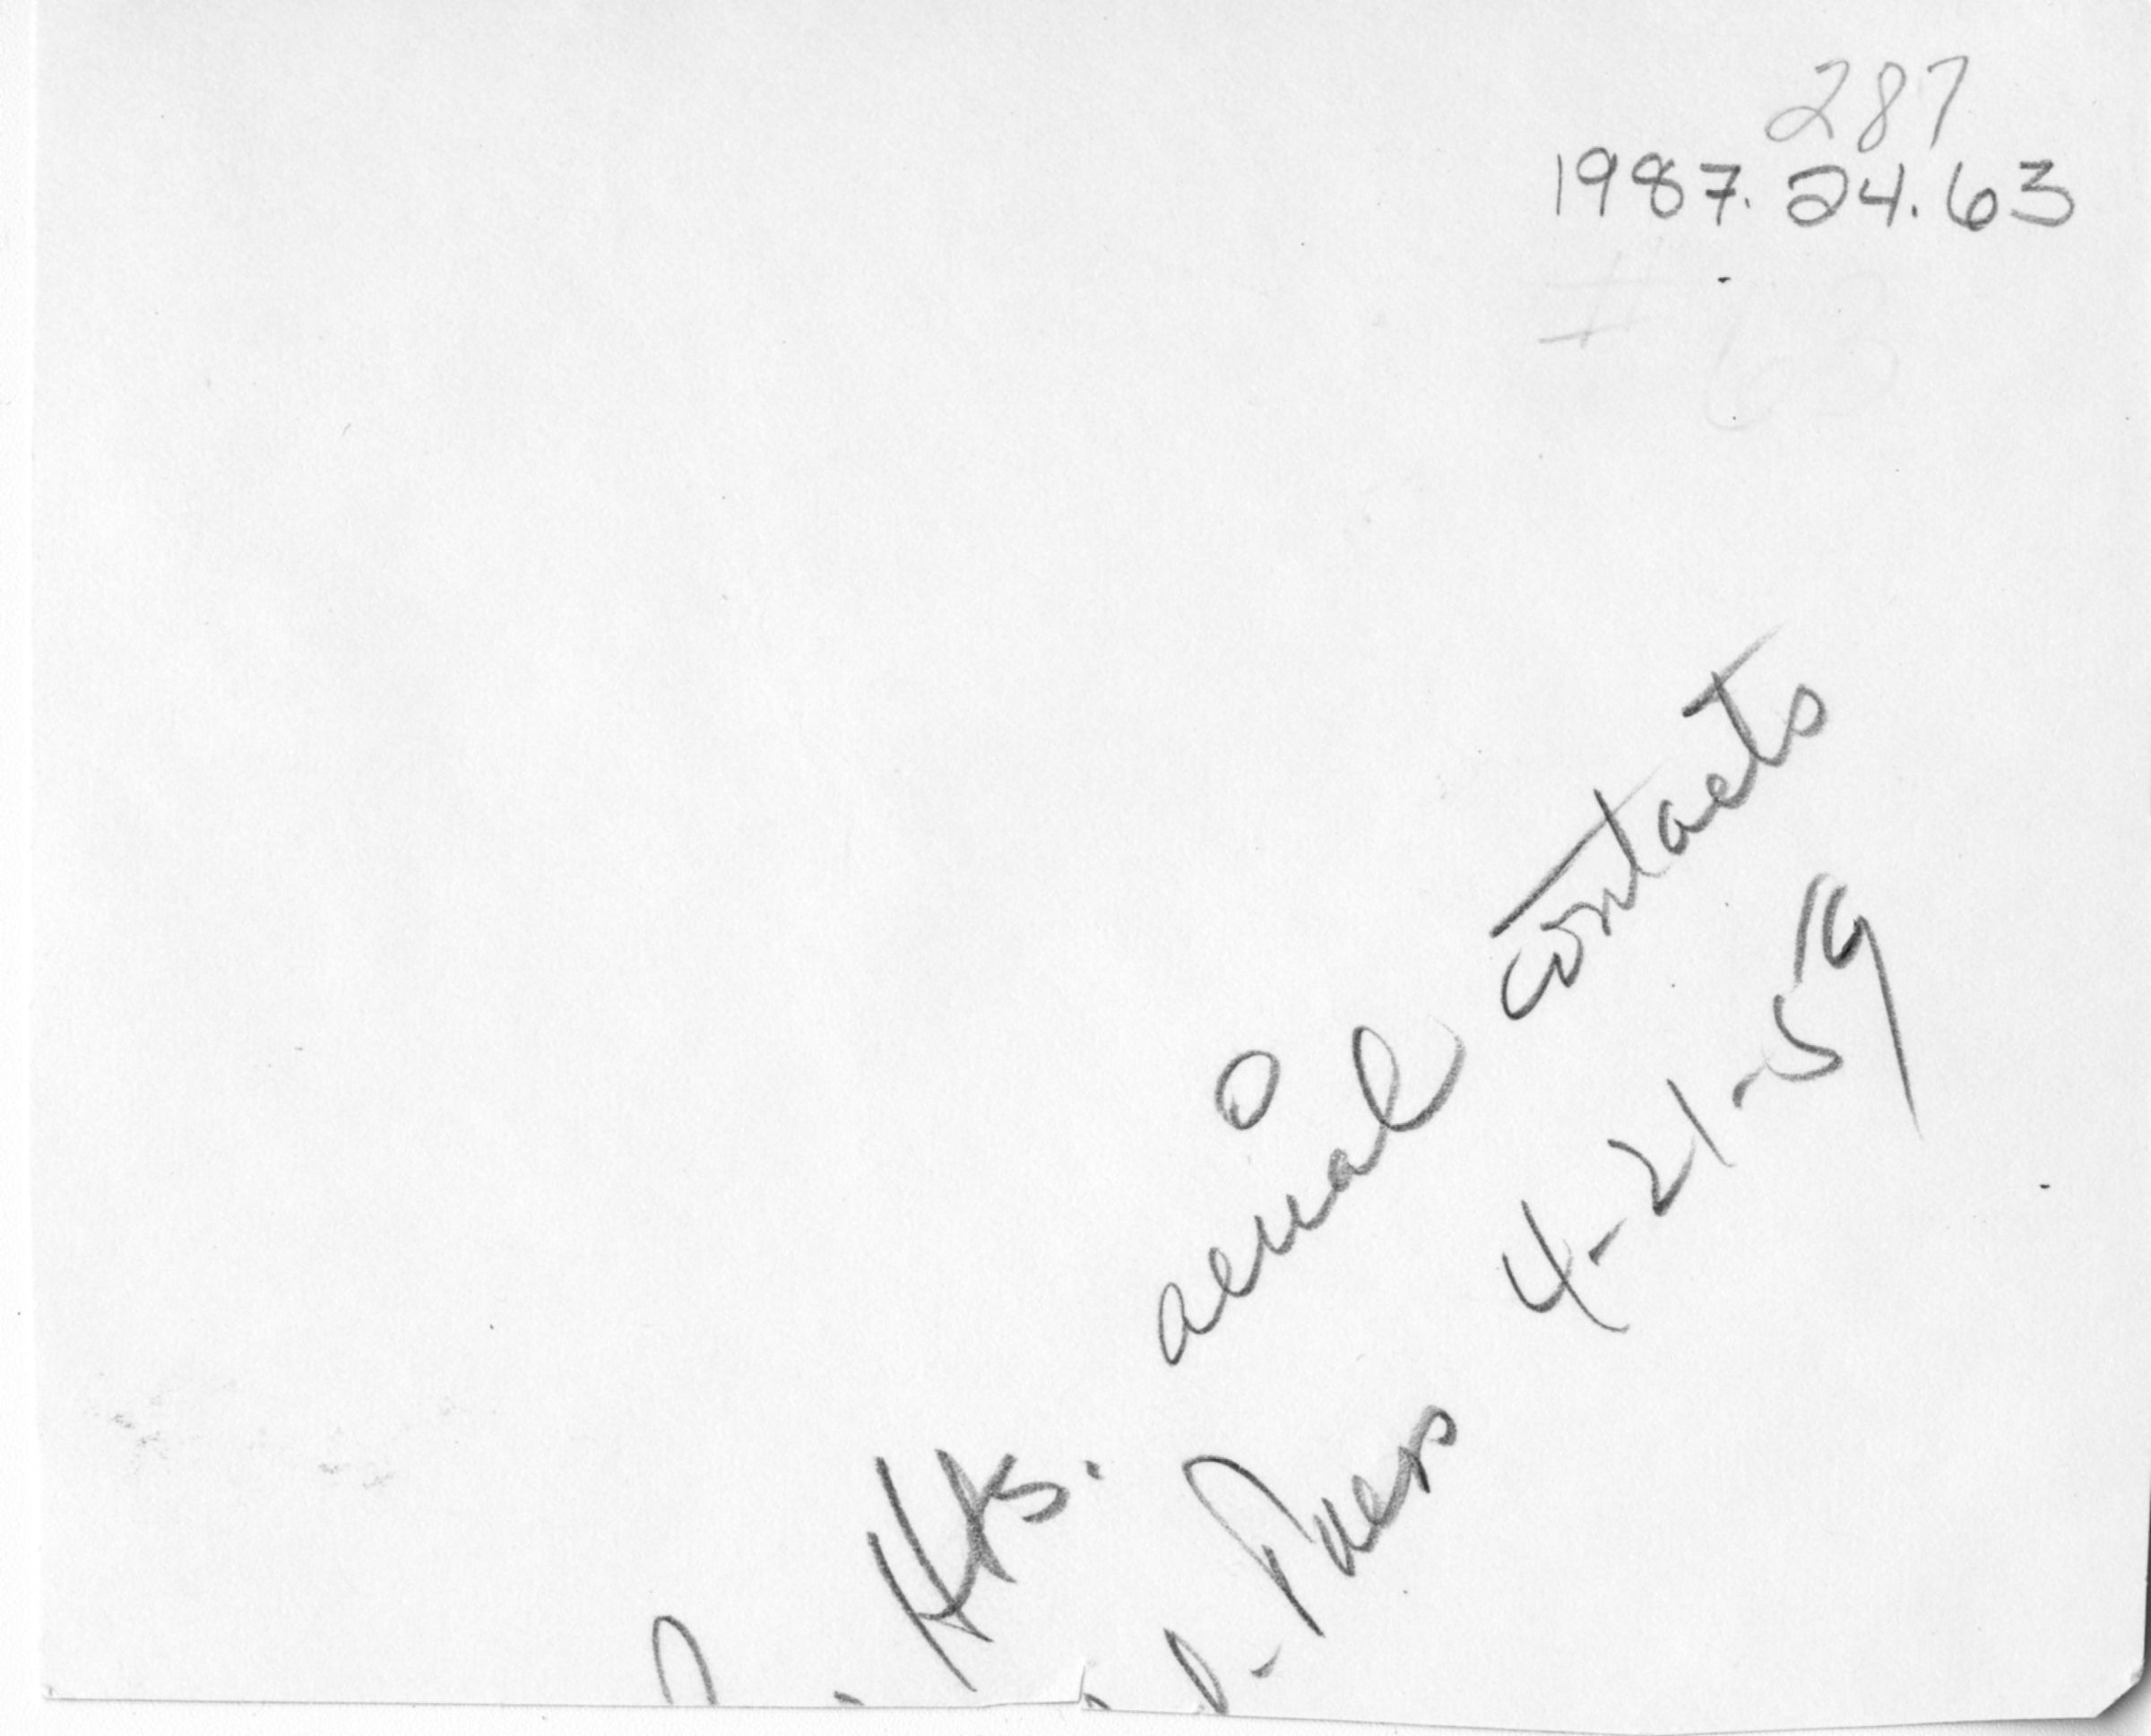 287
1987.24.63
# 63
Hts. aerial contacts
Tues 4-21-59